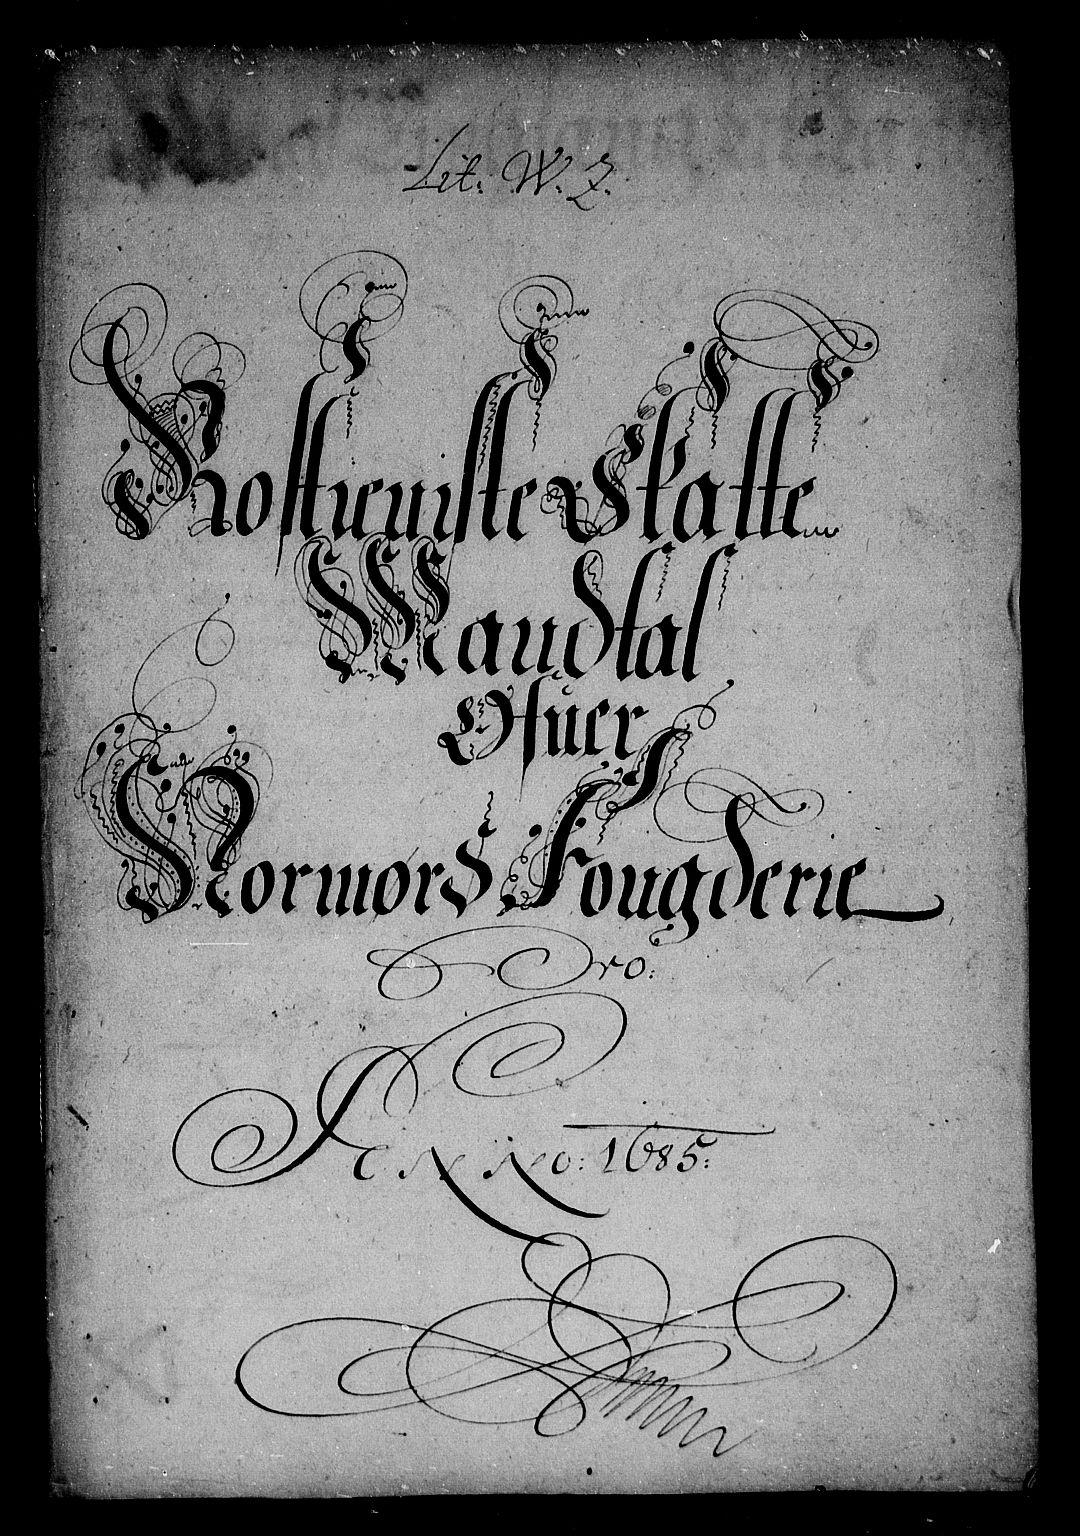 Lit. W. Z.
Rostieniste Skatte
Mandtal
Ofuer
Normørs Fougderie
Pro.
Anno. 1685.